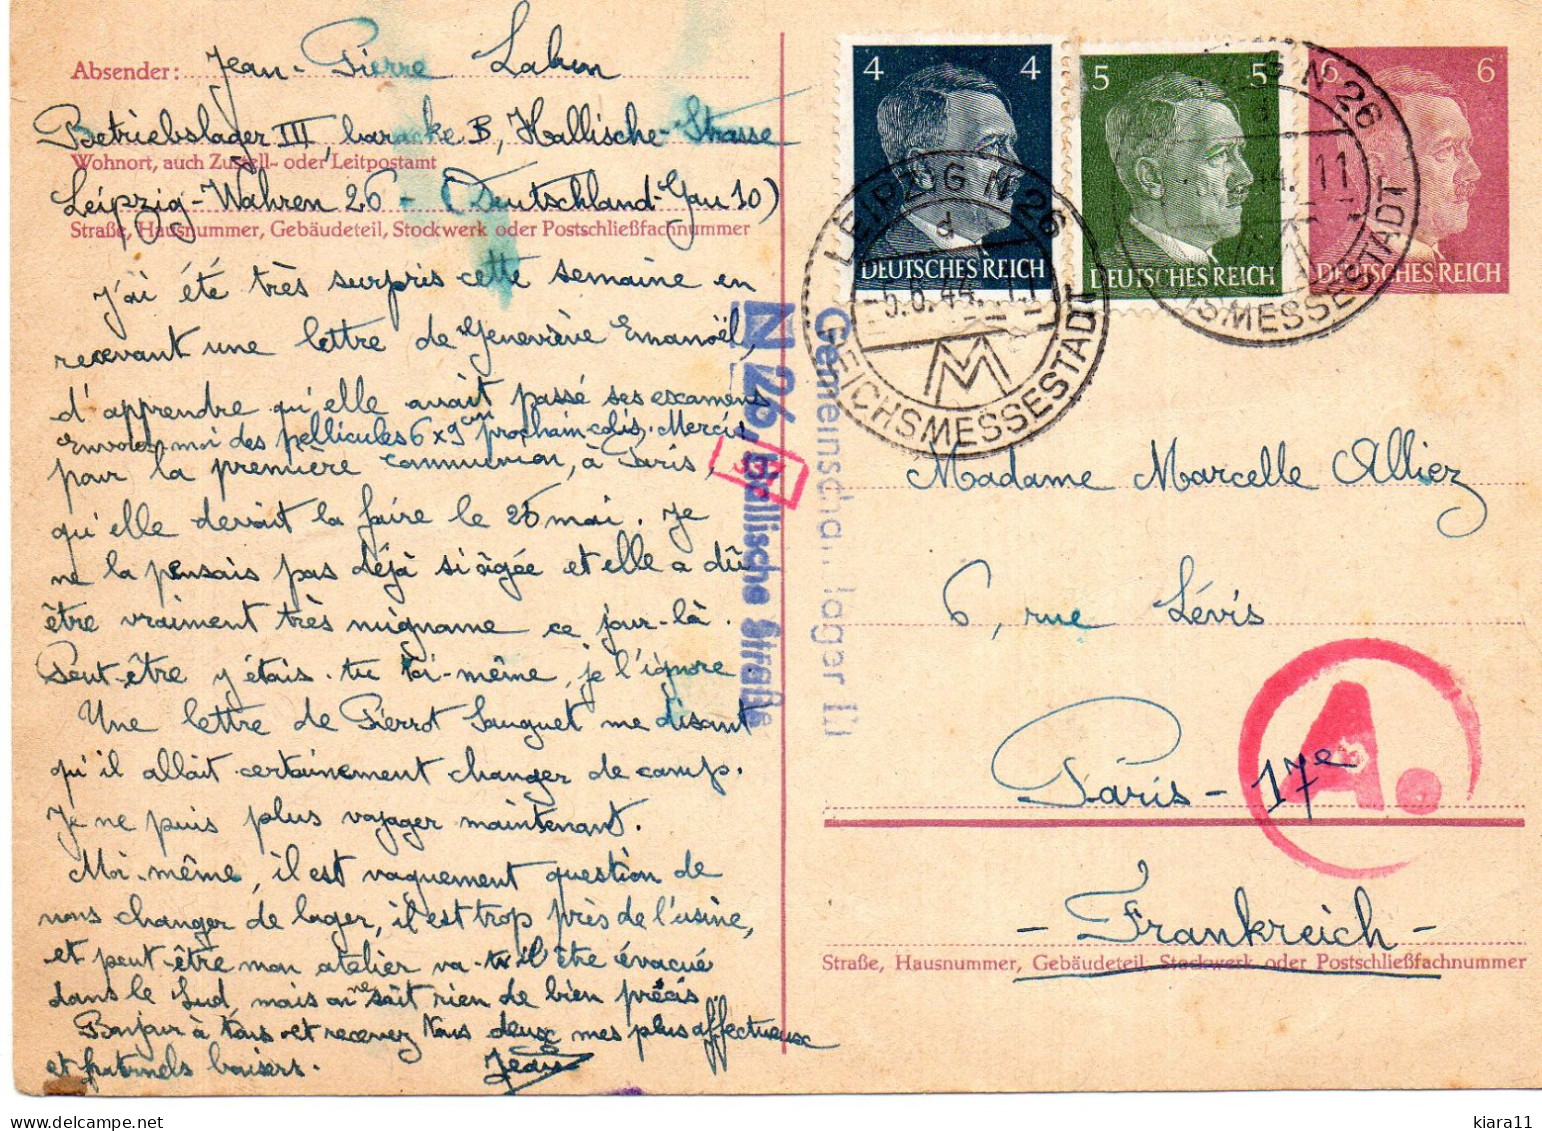 Absender: Jean-Pierre
Betriebslager III, baracke B, Hallische-Strasse
Wohnort, auch Zustell- oder Leitpostamt
Leipzig-Wahren 26 - (Deutschland-Gau 10)
Straße, Hausnummer, Gebäudeteil, Stockwerk oder Postschließfachnummer
J'ai été très surpris cette semaine en
recevant une lettre de Geneviève Emanoël,
d'apprendre qu'elle avait passé ses examens
Envoies-moi des pellicules 6x9 prochain colis. Merci
pour la première communion, à Paris,
qu'elle devait la faire le 25 mai. Je
ne la pensais pas déjà si âgée et elle a dû
être vraiment très mignonne ce jour-là.
Peut-être y étais-tu toi-même, je l'ignore
Une lettre de Pierrot Sauguet me disant
qu'il allait certainement changer de camp.
Je ne puis plus voyager maintenant.
Moi-même, il est vaguement question de
nous changer de lager, il est trop près de l'usine,
et peut-être mon atelier va-t-il être évacué
dans le Sud, mais on ne sait rien de bien précis
Bonjour à tous et recevez tous deux mes plus affectueux
et fraternels baisers. Jean
N 26, Hallische Straße
4 4
DEUTSCHES REICH
5 5
DEUTSCHES REICH
6 6
DEUTSCHES REICH
LEIPZIG N 26
d
-5.6.44.11
REICHSMESSESTADT
M
Madame Marcelle Alliez
6, rue Lévis
Paris - 17e
A.
- Frankreich -
Straße, Hausnummer, Gebäudeteil, Stockwerk oder Postschließfachnummer
kiara11